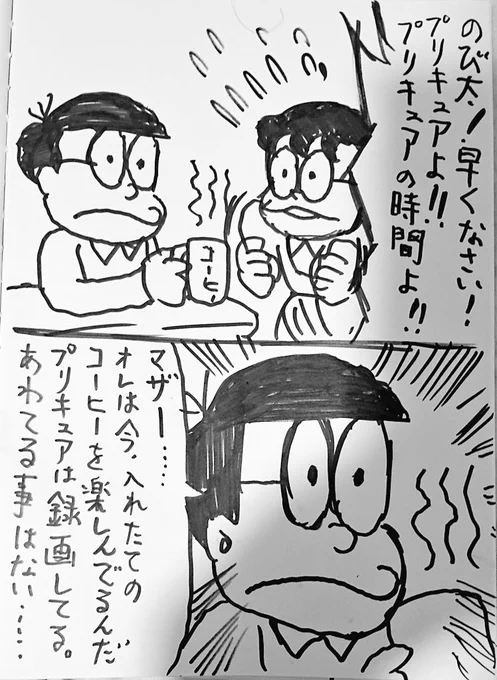 のび太!早くなさい!
プリキュアよ!!
プリキュアの時間よ!!
コーヒー
マザー……
オレは今、入れたての
コーヒーを楽しんでるんだ
プリキュアは録画してる。
あわてる事はない……